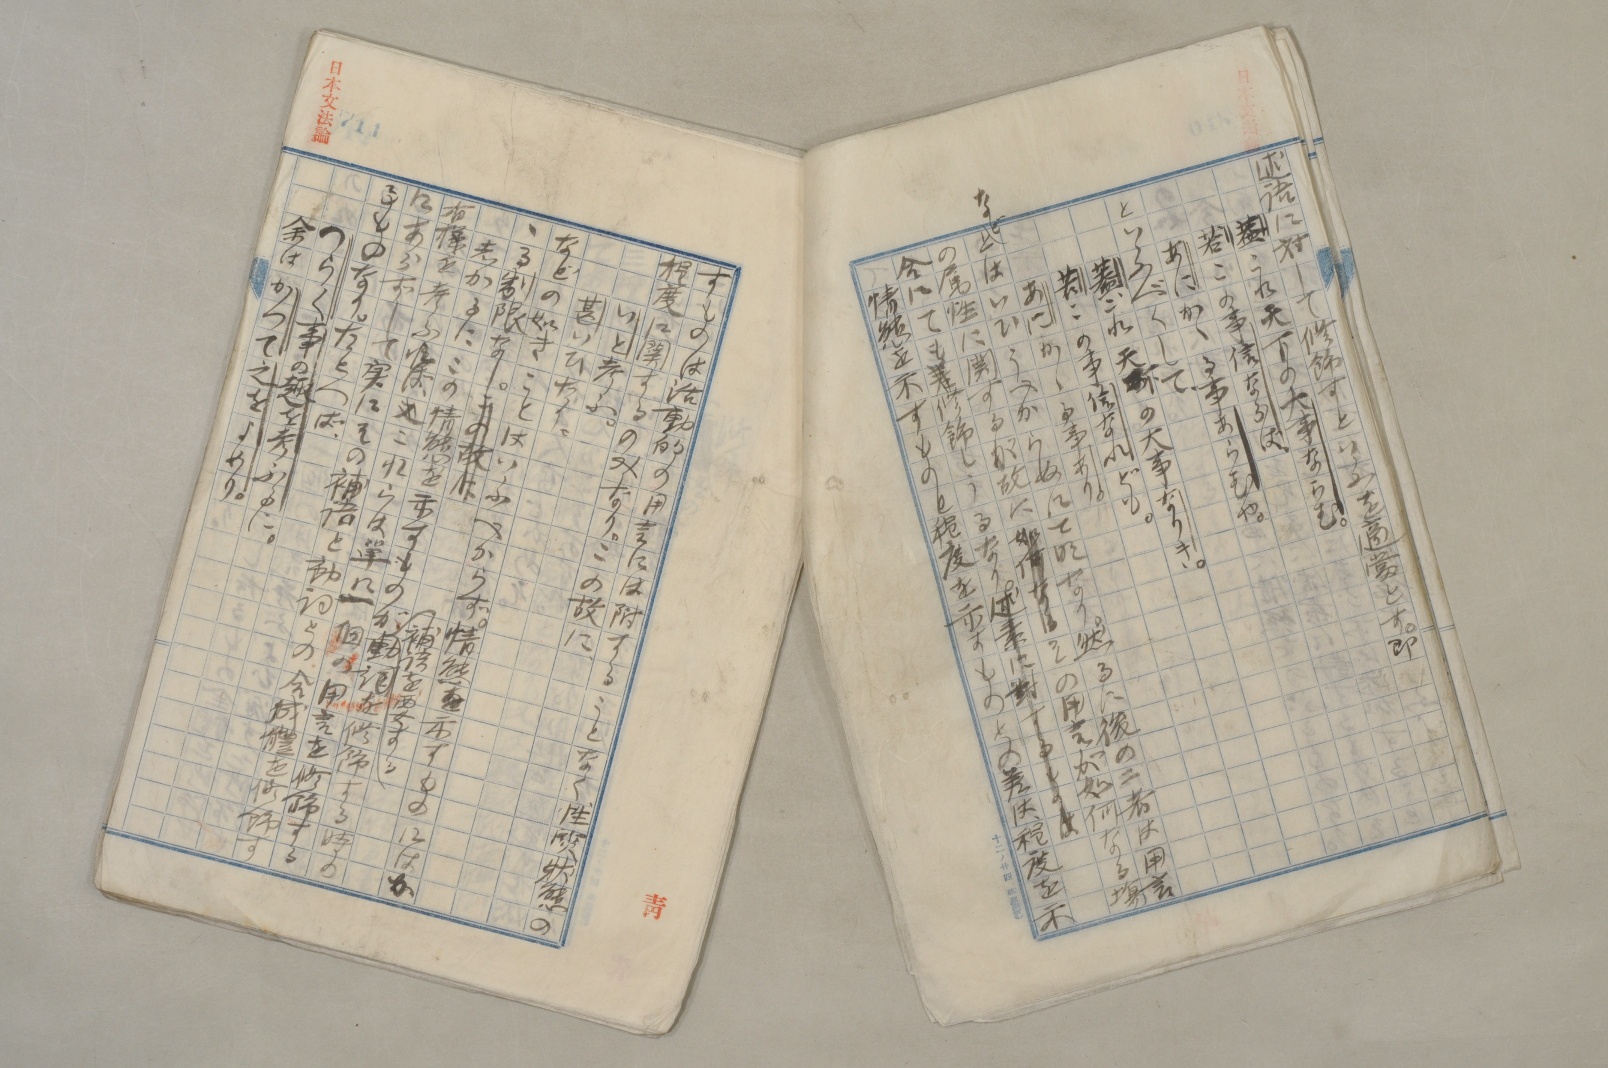 述語に対して修飾すといふを適当とす。即
蓋これ天下の大事ならむ。
若この事信ならば、
あにかゝる事あらむや。
といふべくして
蓋これ天下の大事なりき。
若この事信なれども。
あにかゝる事あり。
などとはいひうべからぬにて明なり。然るに後の二者は用言
の属性に関するが故にその用言が如何なる場
合にても修飾しうるなり。
情態を示すものと程度を示すものとの差は程度を示
すものは活動的の用言には附することなく性質状態の
程度に関するのみなり。この故に
いと考ふ。
甚いひたり、
などの如きことはいふべからず。情態を示すものにはかゝ
る制限なし。この故に
しかるにこの情態を示すものが動詞を修飾する時の
有様を考ふれば、これらは単に一個の用言を修飾する
にあらずして実にその補語と動詞との合成体を修飾す
るものなり。たとへば、
(補語を要する)
つらく事の趣を考ふるに。
余はかつて之をよめり。
日本文法論
青